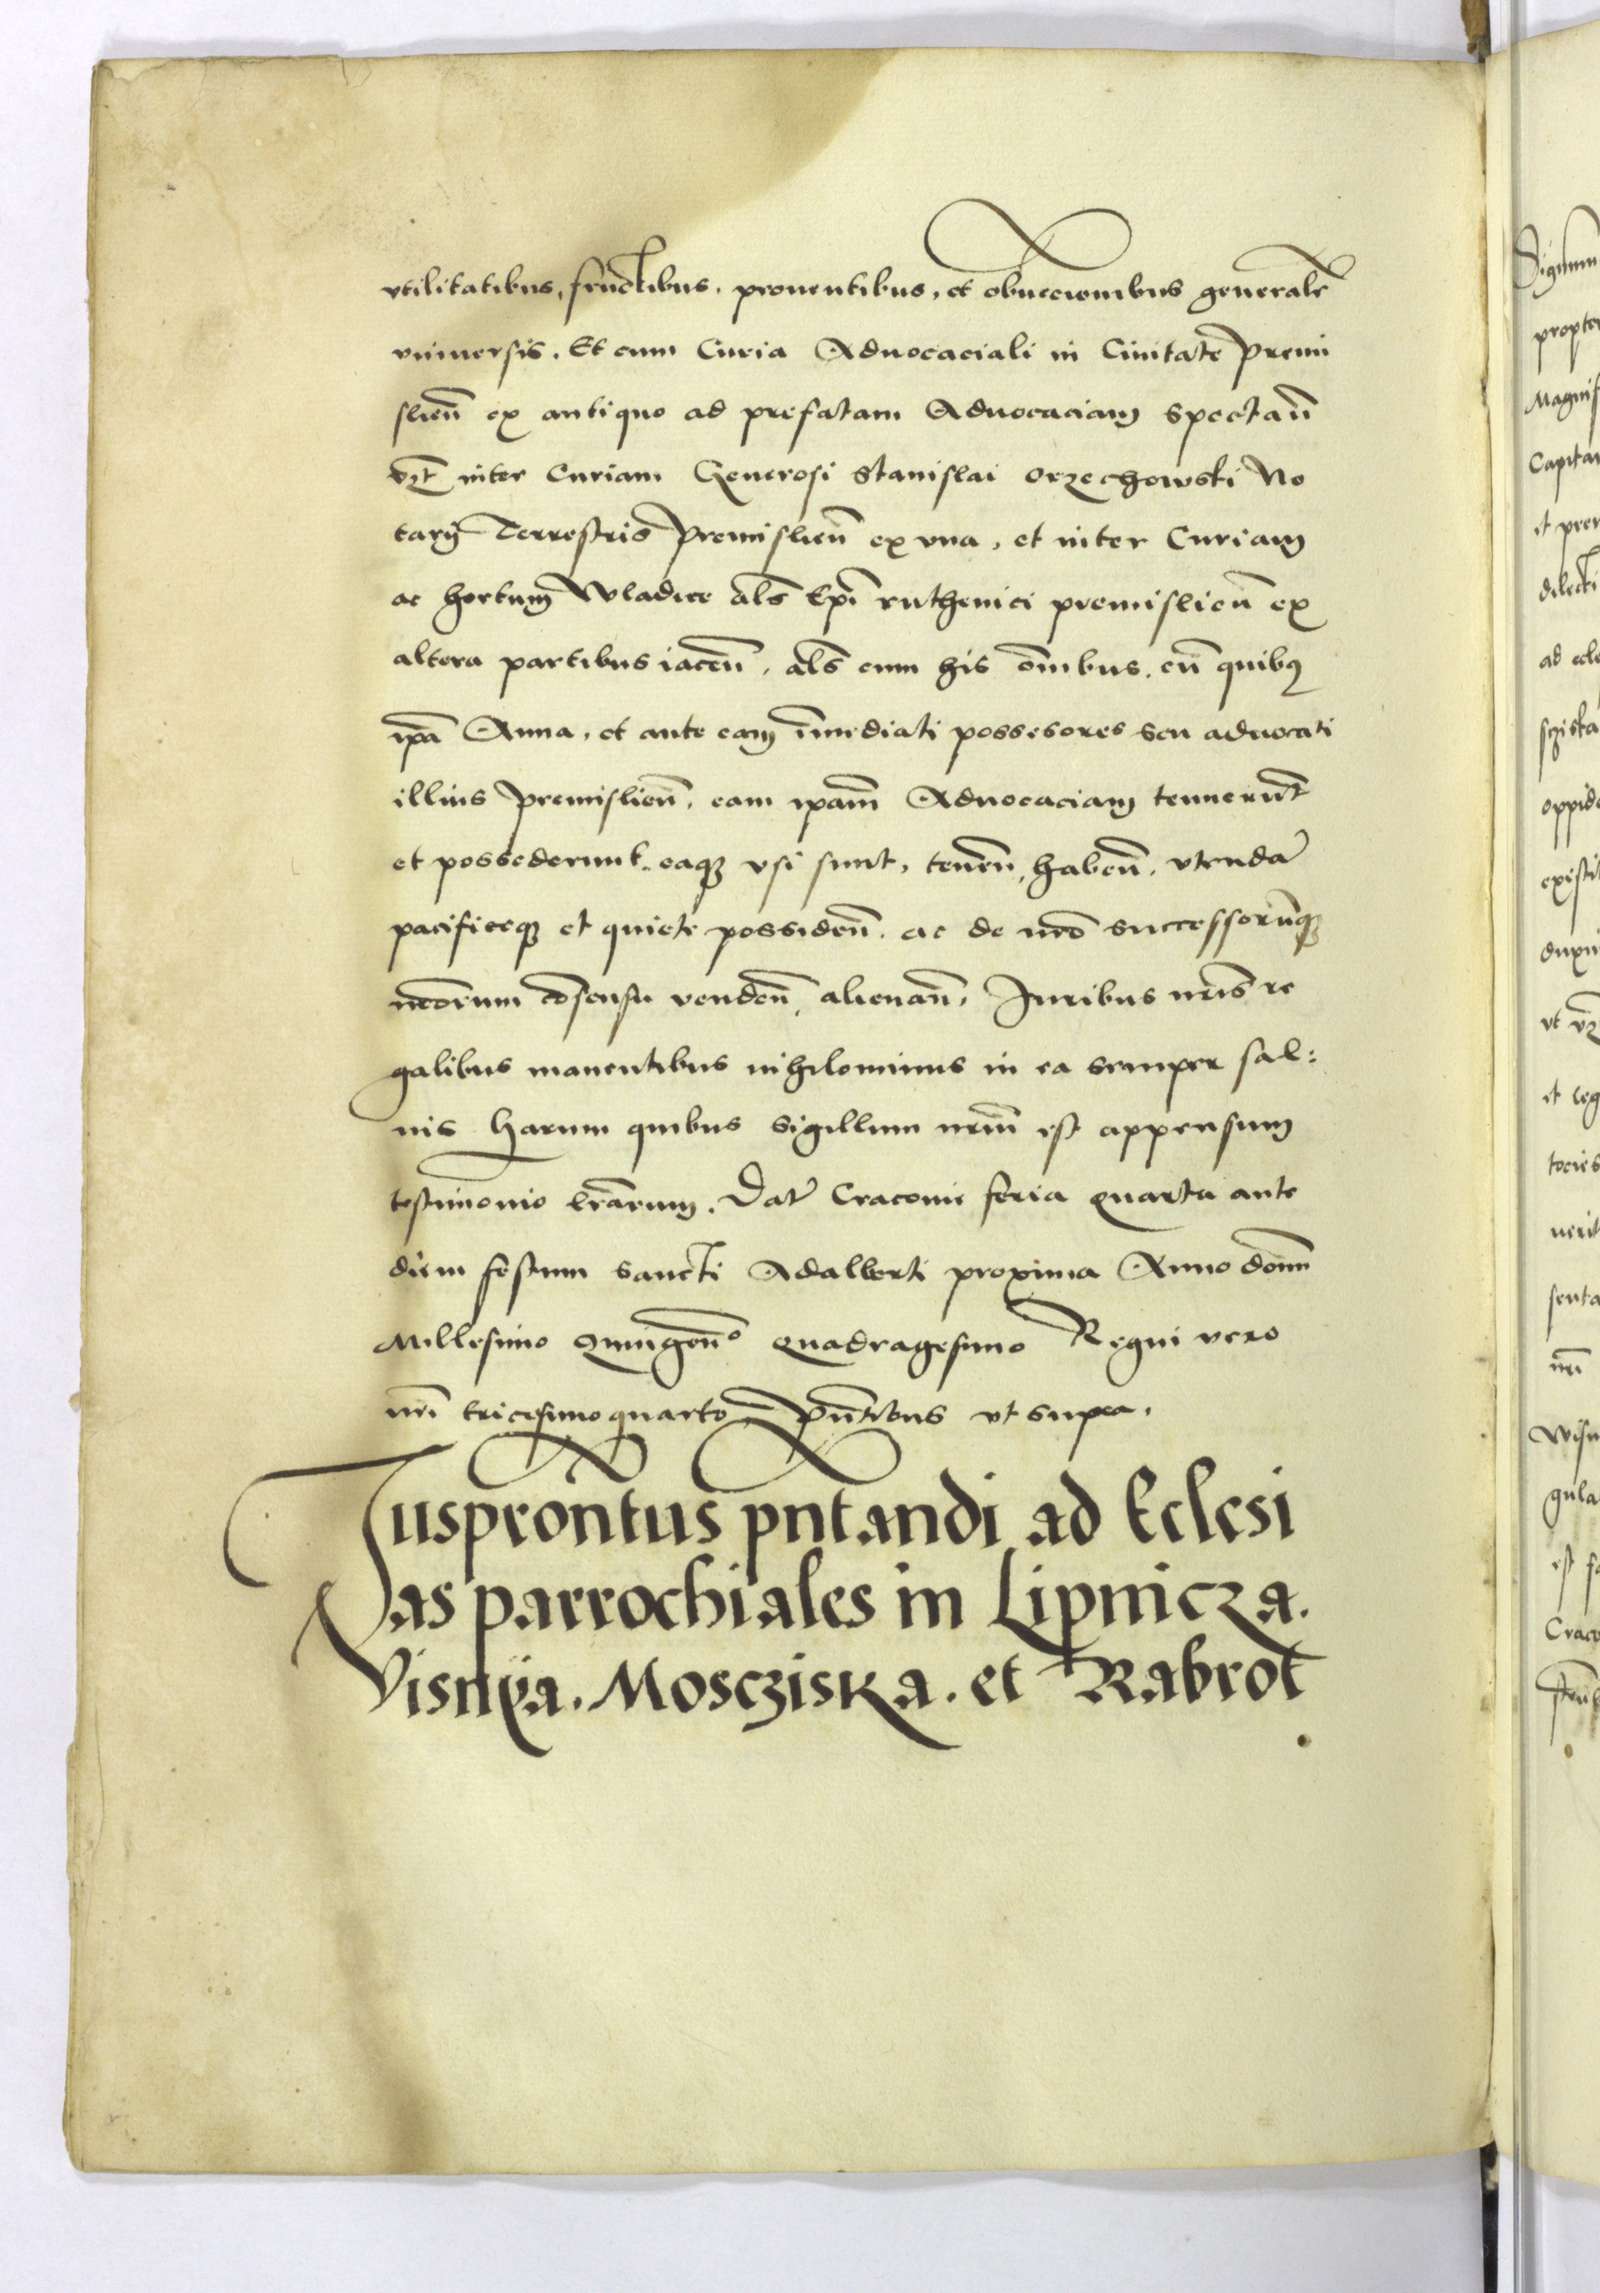 vtilitatibus, fructibus, prouentibus, et obuencionibus generalr̃
vniuersis. Et cum Curia Aduocaciali in Ciuitate Premi
slien̄ ex antiquo ad prefatam Aduocaciam spectan̄
vz̄t inter Curiam Generosi Stanislai Orzechowski No
tarij Terrestris Premislien̄ ex vna, et inter Curiam
ac hortum Wladice als̄ Ep̄i ruthenici premislien̄ ex
altera partibus iacen̄. als̄ cum his om̄ibus. cū quibus
ip̄a Anna, et ante eam im̄ediati possesores seu aduocati
illius Premislien̄. eam ip̄am Aduocaciam tenuerunt
et possederunt. eaq3 vsi sunt, tenen̄, haben̄. vtenda
pacificeq3 et quiete possiden̄. ac de nr̄o successorūq3
nr̄orum cōsensu venden̄, alienan̄. Iuribus nr̄is re
galibus manentibus nihilominus in ea semper sal:
uis Harum quibus sigillum nr̄m̄ est appensum
testimonio lr̄arum. Dat̄ Cracouie feria quarta ante
diem festum Sancti Adalberti proxima Anno domini
Millesimo Quingen̄o Quadragesimo Regni vero
nr̄i tricesimoquarto p̄n̄tibus vt supra.
Juspron̄tus pn̄tandi ad Eclesi
as parrochiales in Lipnicza.
Visnÿa. Moscziska. et Rabrot